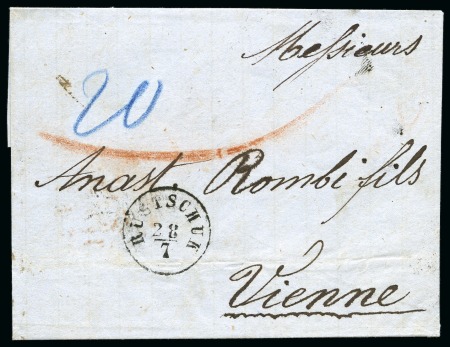 Messieurs
20
Anast. Rombi fils
RUSTSCHUK
28
7
Vienne